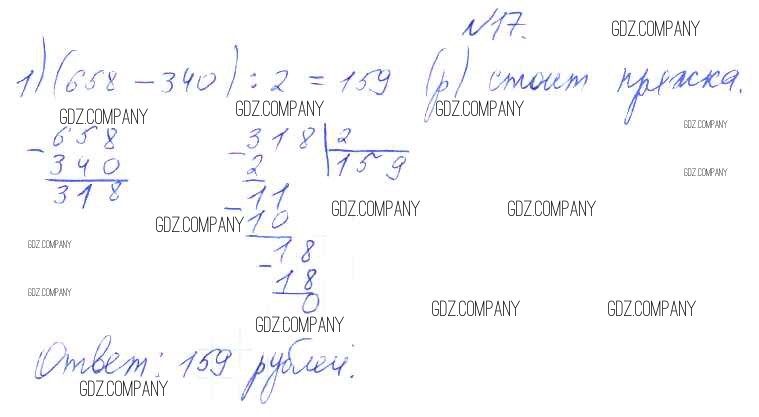 №17. GDZ.COMPANY
1) (658 - 340) : 2 = 159 (р) стоит пряжка.
GDZ.COMPANY GDZ.COMPANY GDZ.COMPANY GDZ.COMPANY
- 658
340
318
- 318 | 2
2 159
- 11
10
- 18
18
0
GDZ.COMPANY
GDZ.COMPANY GDZ.COMPANY GDZ.COMPANY
GDZ.COMPANY
GDZ.COMPANY
GDZ.COMPANY GDZ.COMPANY
GDZ.COMPANY
Ответ: 159 рублей.
GDZ.COMPANY